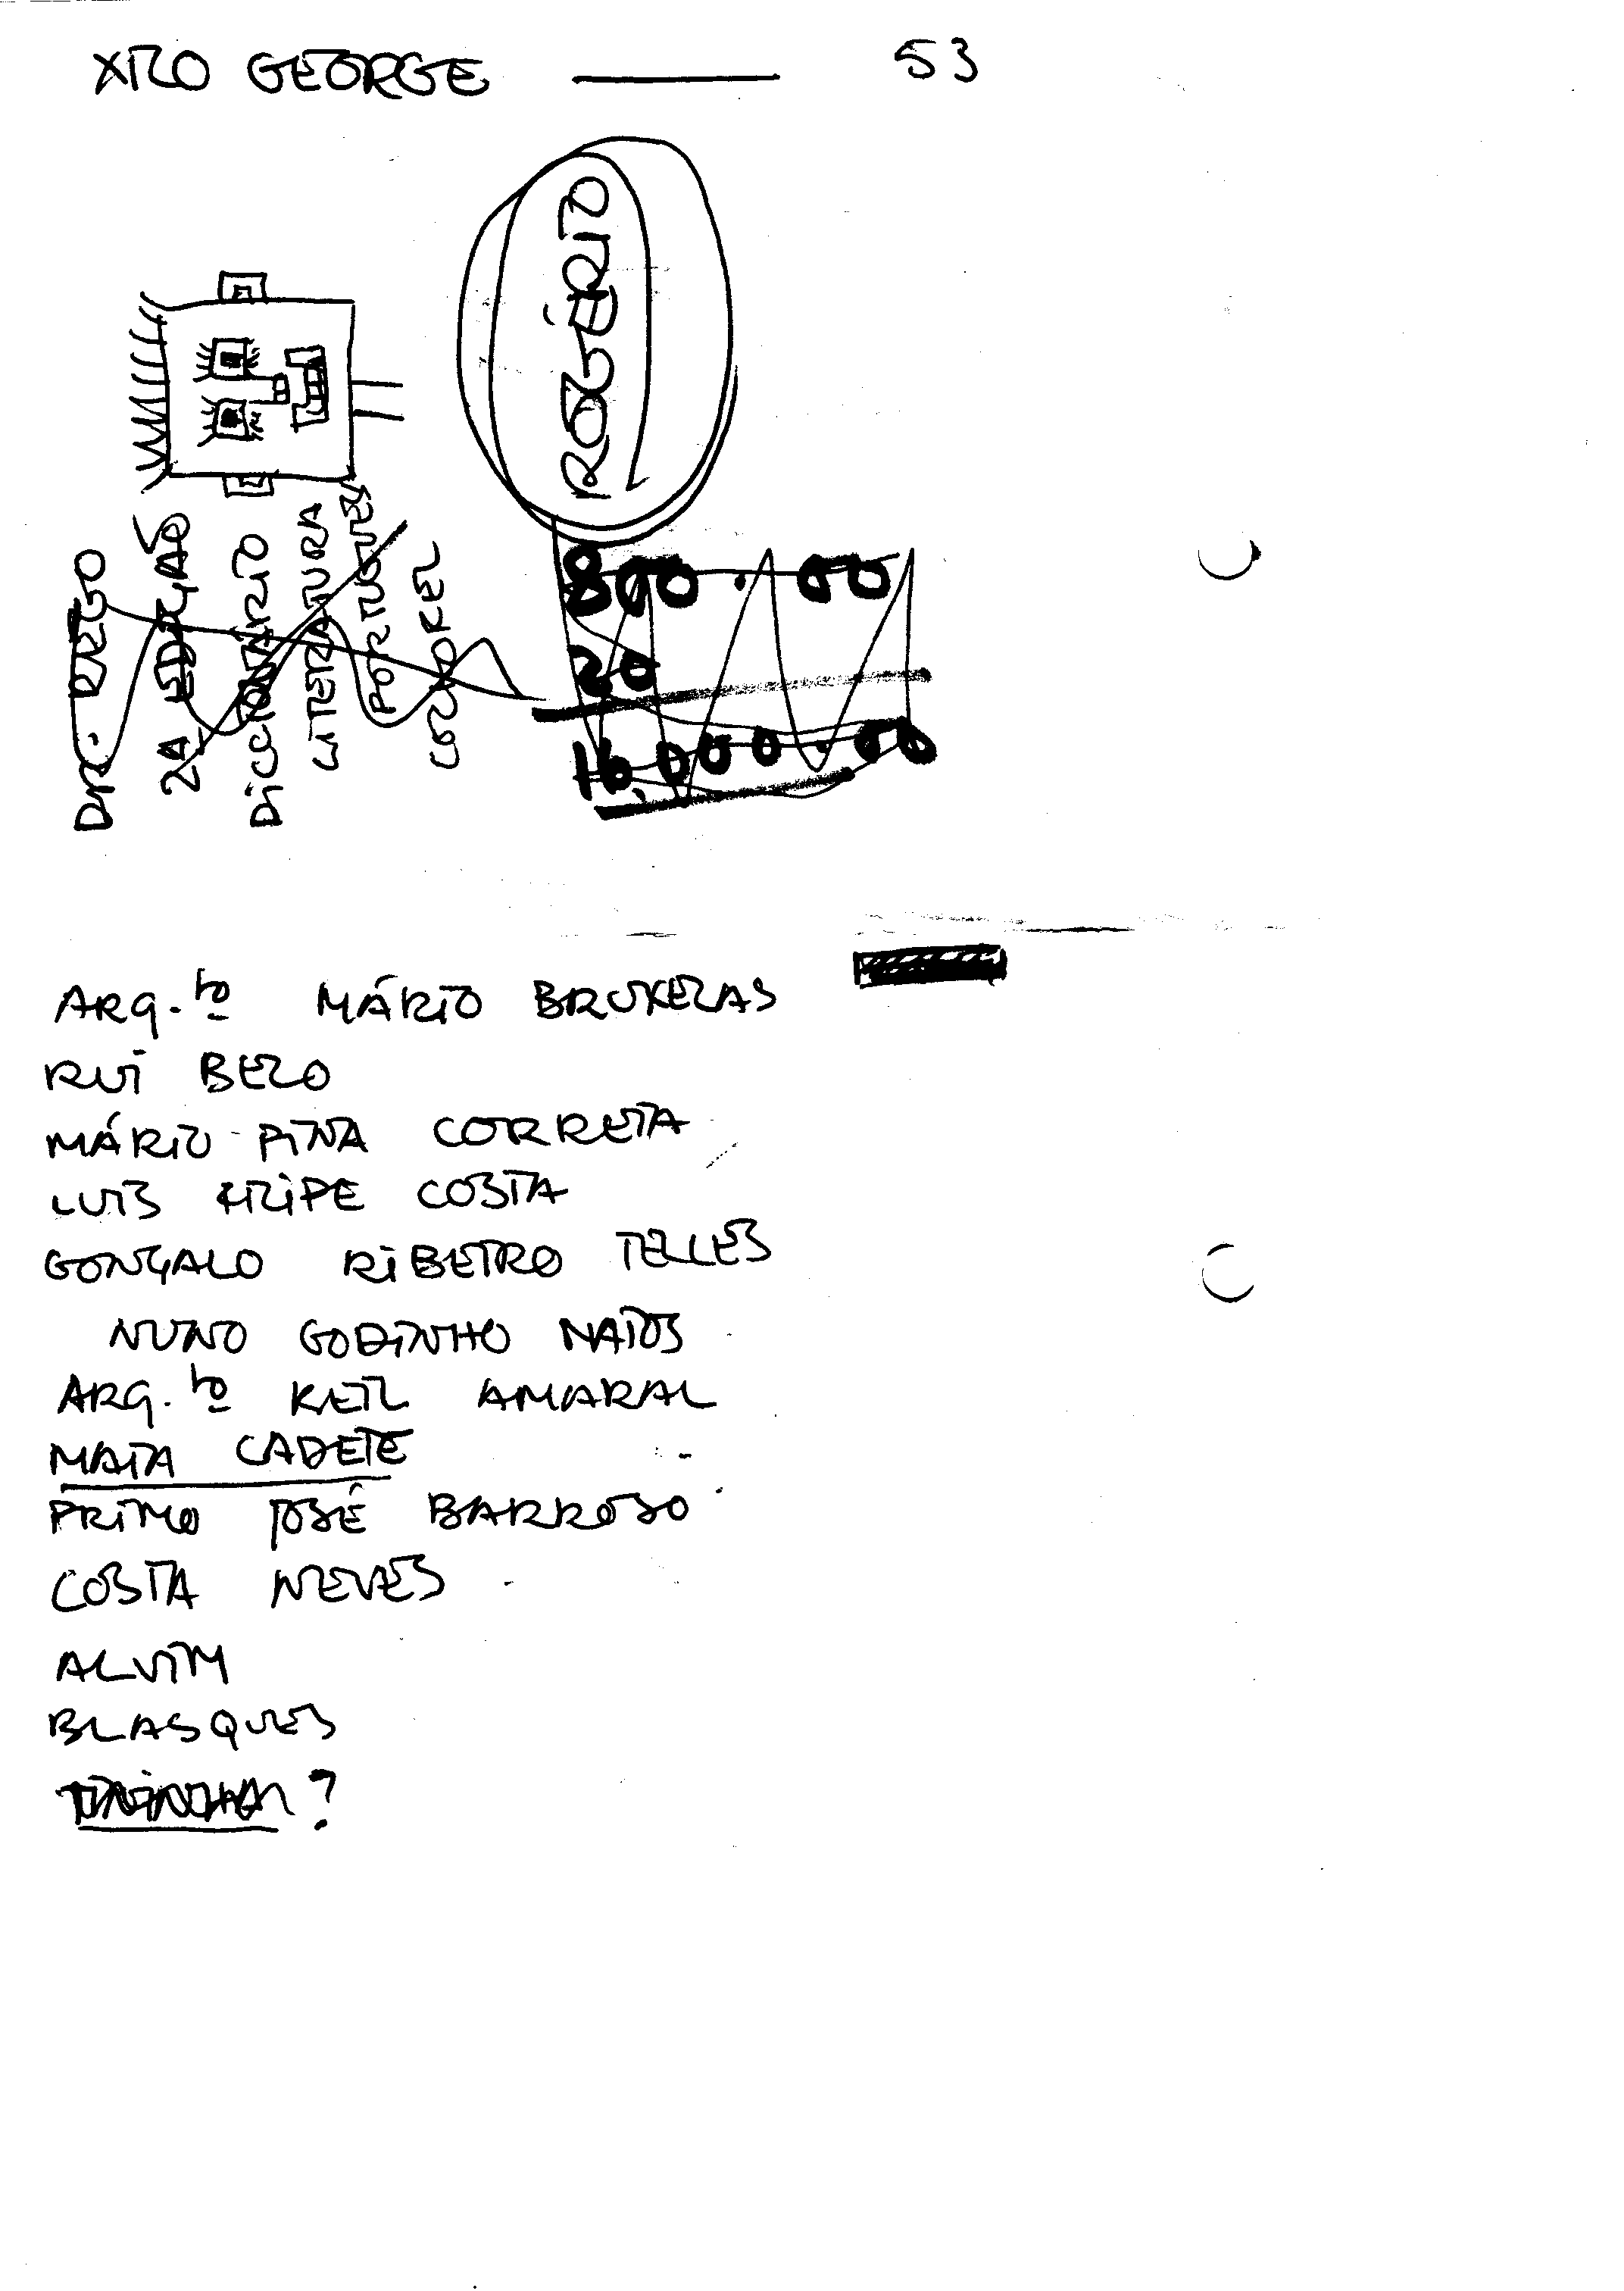 XICO GEORGE — 53
ROGÉRIO
DR. REGO
2A EDIÇÃO
DICCIONÁRIO
LITERATURA
PORTUGUESA
800.00
20
16.000.00
ARQ.to MÁRIO BRUXELAS
RUI BELO
MÁRIO PINA CORREIA
LUIS FILIPE COSTA
GONÇALO RIBEIRO TELLES
NUNO GODINHO MATOS
ARQ.to KEIL AMARAL
MAIA CADETE
PRIMO JOSÉ BARROSO
COSTA NEVES
ALVIM
BLASQUES
?